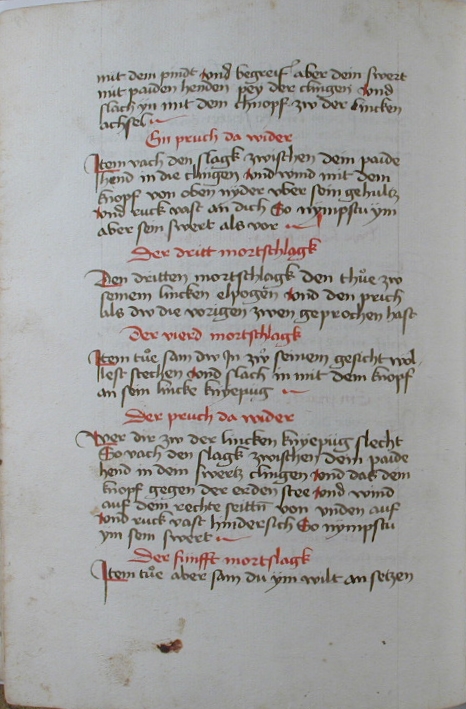 mit dem pindt vnd begreiff aber dein swert
mit paiden henden pey der clingen vnd
slach yn mit dem chnopf zw der lincken
achsel
Ein pruch da wider
Item vach den slagk zwischen dein paide
hend in die clingen vnd wind mit dem
knopf von oben nyder vber sein gehultz
vnd ruck vast an dich So nympstu ym
aber sein swert als vor
Der dritt mortschlagk
Den dritten mortschlagk den thue zw
seinem lincken elpogen vnd den pruch
als dw die vorigen zwen geprochen hast
Der vierd mortschlagk
Item tue sam dw Jn zw seinem gesicht wol-
lest stechen vnd slach in mit dem knopf
an sein lincke knyepug
Der pruch da wider
Wer dir zw der lincken knyepug slecht
So vach den slagk zwischen dein paide
hend in dem swertz clingen vnd das dem
knopf gegen der erden stee vnd wind
auf dein rechte seittn von vnden auf
vnd ruck vast hindersich So nympstu
ym sein swert
Der funfft mortslagk
Item tue aber sam du ym wilt an setzen